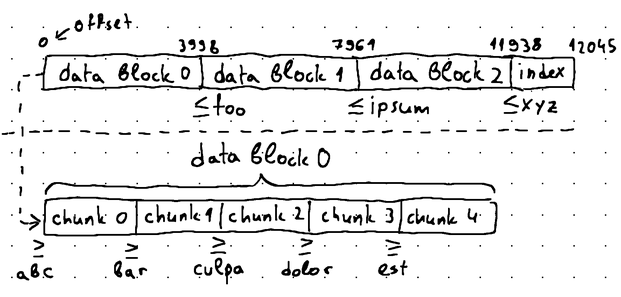 0 ↙ offset
3998 7961 11938 12045
data block 0 data block 1 data block 2 index
≤foo ≤ipsum ≤xyz
data block 0
chunk 0 chunk 1 chunk 2 chunk 3 chunk 4
≥ ≥ ≥ ≥ ≥
abc bar culpa dolor est